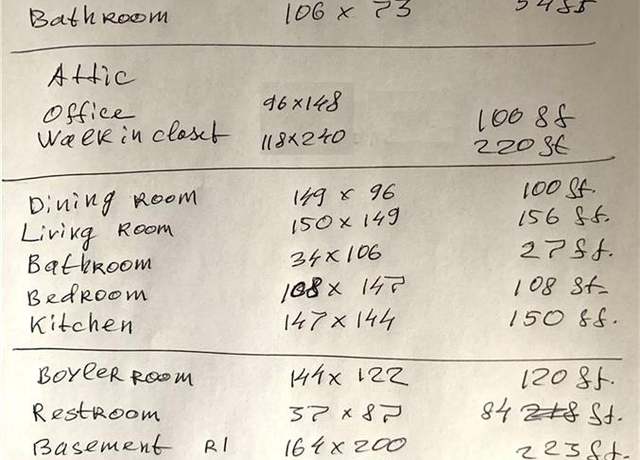 Bathroom 106 x 73 54 ft
Attic
Office 96x148 100 ft
Walk in closet 118x240 220 ft
Dining Room 149 x 96 100 ft.
Living Room 150 x 149 156 ft.
Bathroom 34 x 106 27 ft.
Bedroom 108 x 147 108 ft
Kitchen 147 x 144 150 ft.
Boyler Room 144 x 122 120 ft.
Restroom 37 x 87 84 ft.
Basement R1 164 x 200 223 ft.